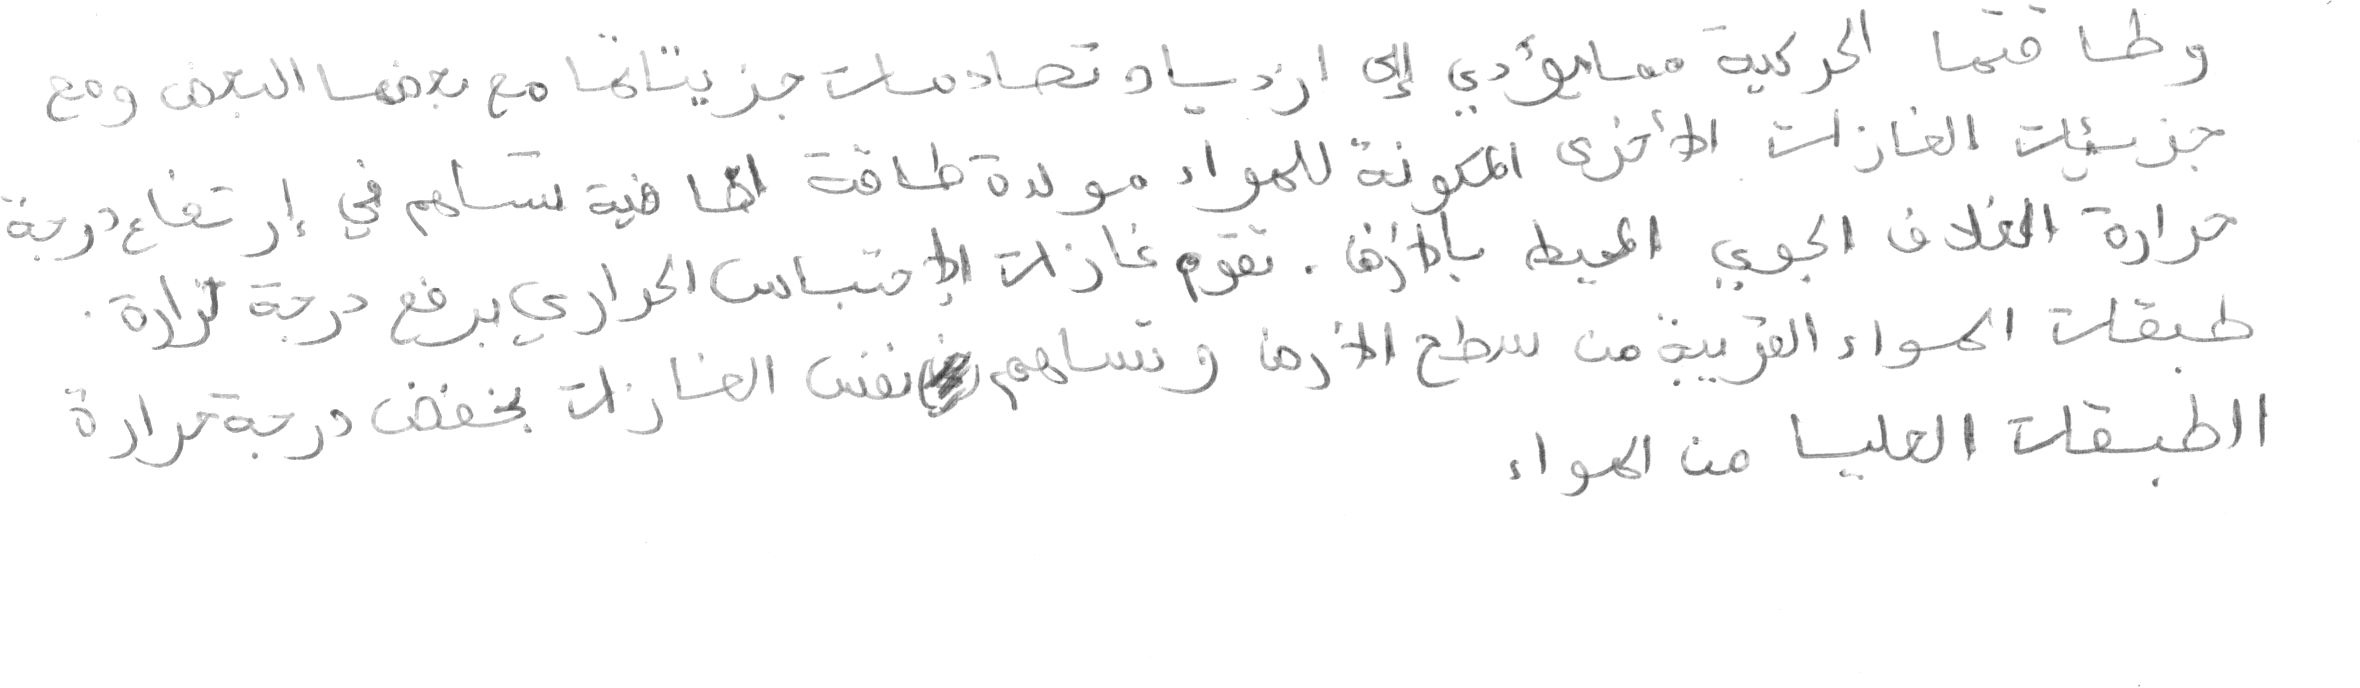 وطاقتها الحركية مما يؤدي إلى ازدياد تصادمات جزيئاتها مع بعضها البعض ومع
جزيئات الغازات الأخرى المكونة للهواء مولدة طاقة اضافية تساهم في إرتفاع درجة
حرارة الغلاف الجوي المحيط بالأرض. تقوم غازات الإحتباس الحراري برفع درجة حرارة
طبقات الهواء القريبة من سطح الأرض وتساهم نفس الغازات بخفض درجة حرارة
الطبقات العليا من الهواء